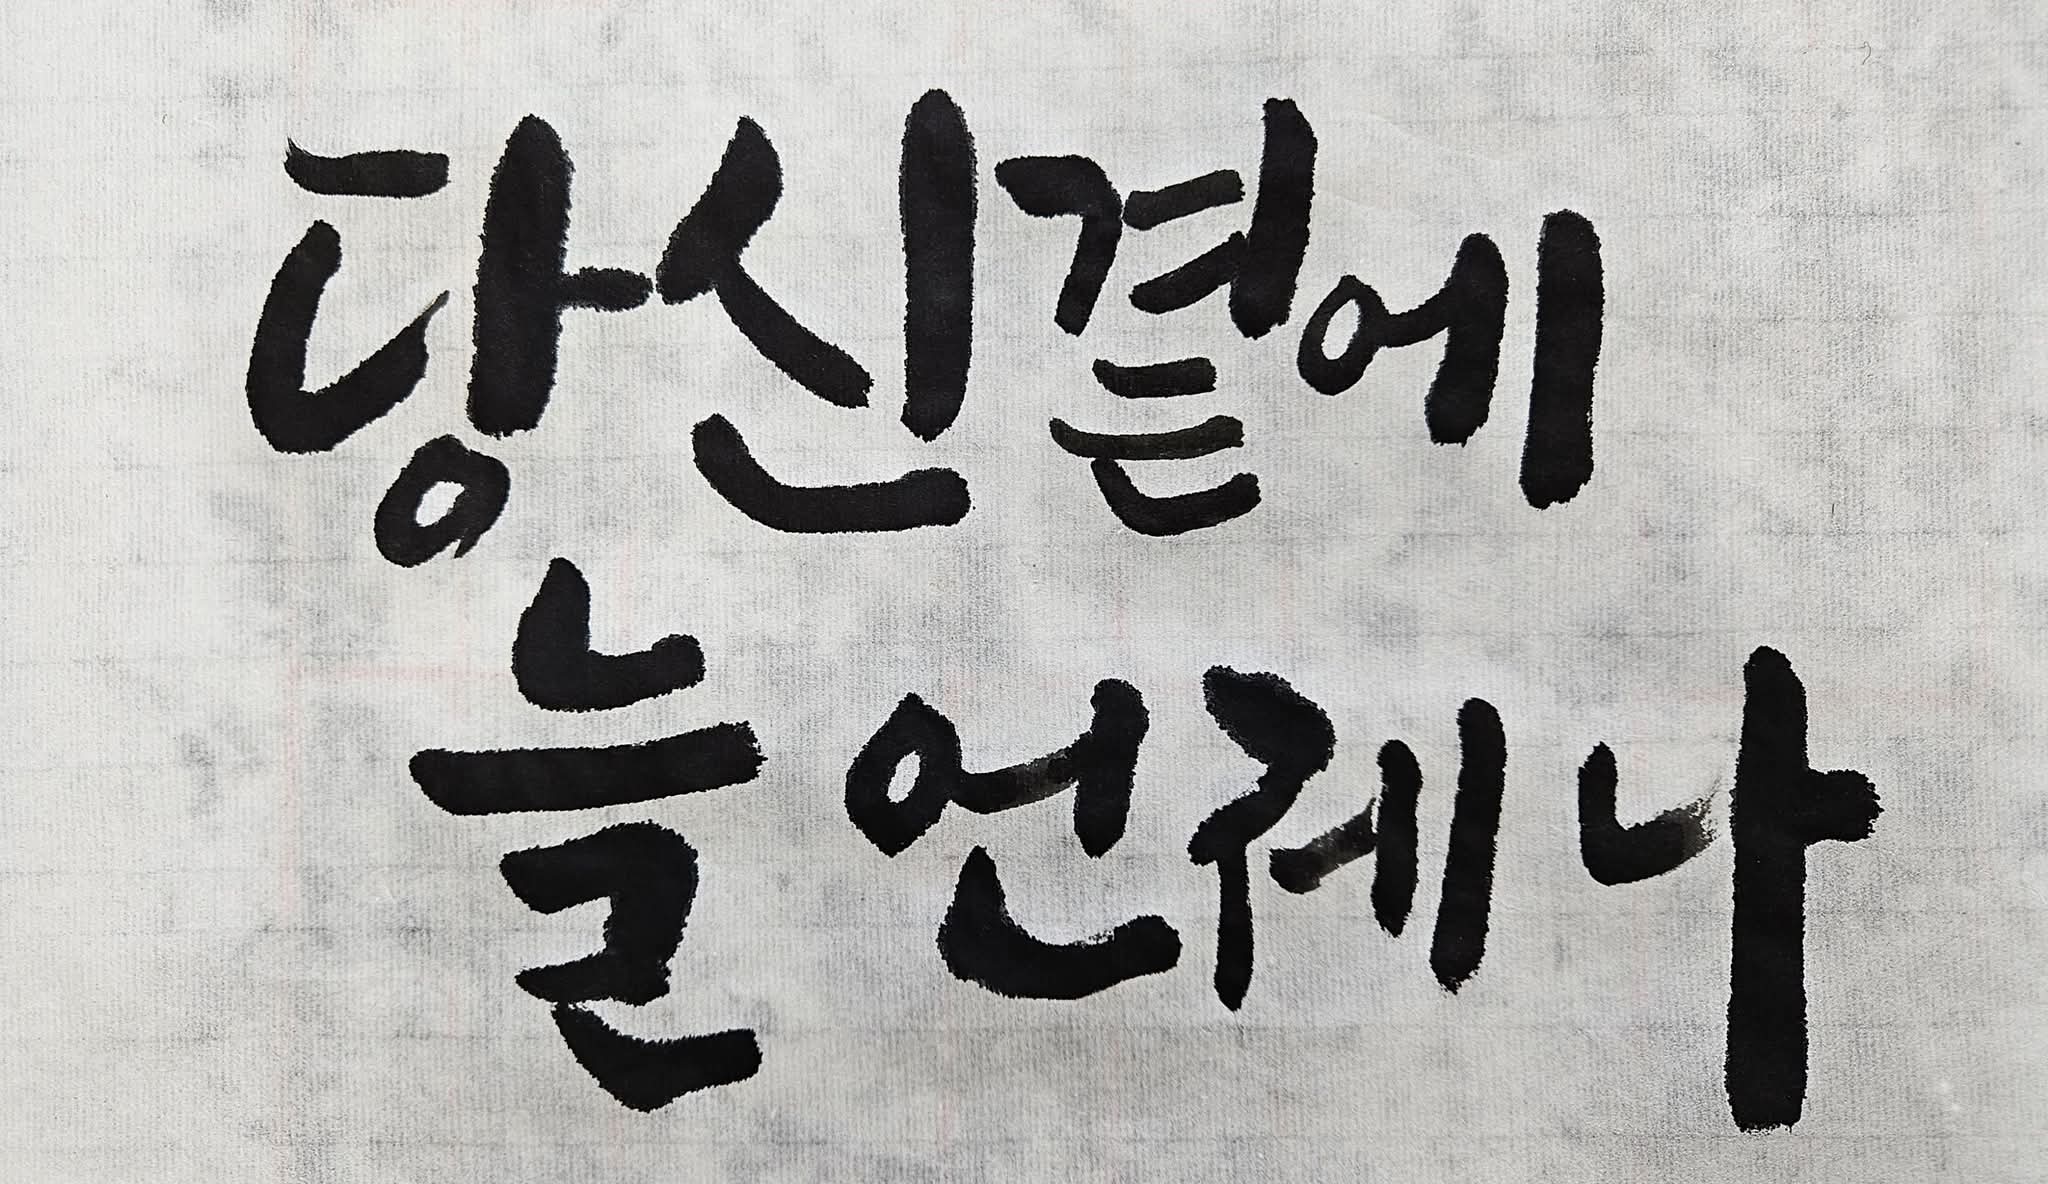 당신 곁에
늘 언제나